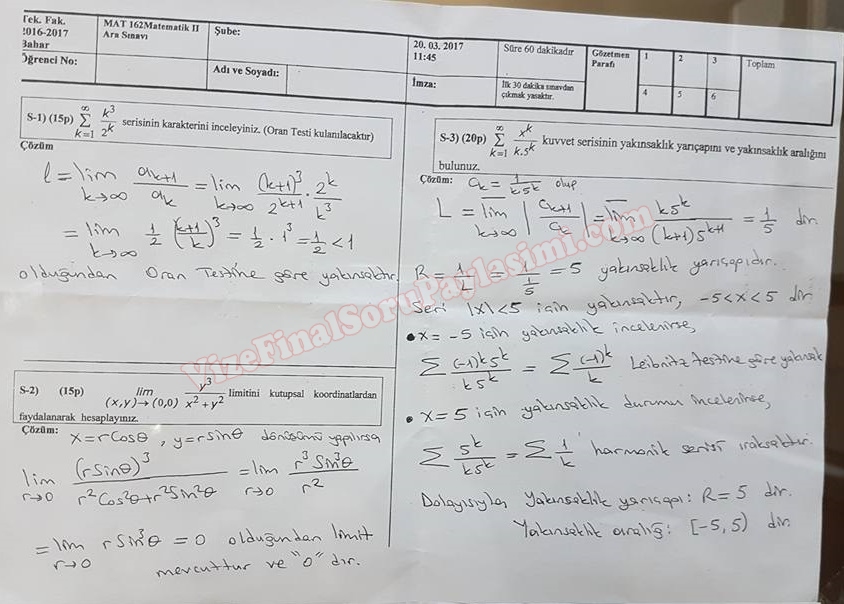 Tek. Fak.
2016-2017
Bahar
Öğrenci No:
MAT 162Matematik II
Ara Sınavı
Şube:
Adı ve Soyadı:
20. 03. 2017
11:45
İmza:
Süre 60 dakikadır
İlk 30 dakika sınavdan
çıkmak yasaktır.
Gözetmen
Parafı
1 2 3
4 5 6
Toplam
S-1) (15p) ∞∑k=1 k³/2ᵏ serisinin karakterini inceleyiniz. (Oran Testi kulanılacaktır)
Çözüm
l = lim k→∞ aₖ₊₁/aₖ = lim k→∞ (k+1)³/2ᵏ⁺¹ · 2ᵏ/k³
= lim k→∞ 1/2 (k+1/k)³ = 1/2 · 1³ = 1/2 < 1
olduğundan Oran Testine göre yakınsaktır.
S-2) (15p) lim (x,y)→(0,0) y³/x²+y² limitini kutupsal koordinatlardan
faydalanarak hesaplayınız.
Çözüm: x=rCosθ, y=rSinθ dönüşümü yapılırsa
lim r→0 (rSinθ)³/r²Cos²θ+r²Sin²θ = lim r→0 r³Sin³θ/r²
= lim r→0 rSin³θ = 0 olduğundan limit
mevcuttur ve "0" dır.
S-3) (20p) ∞∑k=1 xᵏ/k.5ᵏ kuvvet serisinin yakınsaklık yarıçapını ve yakınsaklık aralığını
bulunuz.
Çözüm: aₖ = 1/k5ᵏ olup
L = lim k→∞ |aₖ₊₁/aₖ| = lim k→∞ k5ᵏ/(k+1)5ᵏ⁺¹ = 1/5 dir.
R = 1/L = 1/(1/5) = 5 yakınsaklık yarıçapıdır.
Seri |x|<5 için yakınsaktır, -5<x<5 dir
• x=-5 için yakınsaklık incelenirse,
∑ (-1)ᵏ5ᵏ/k5ᵏ = ∑ (-1)ᵏ/k Leibnitz testine göre yakınsak
• x=5 için yakınsaklık durumu incelenirse,
∑ 5ᵏ/k5ᵏ = ∑ 1/k harmonik serisi ıraksaktır.
Dolayısıyla Yakınsaklık yarıçapı: R=5 dir.
Yakınsaklık aralığı: [-5,5) dir.
VizeFinalSoruPaylasimi.com